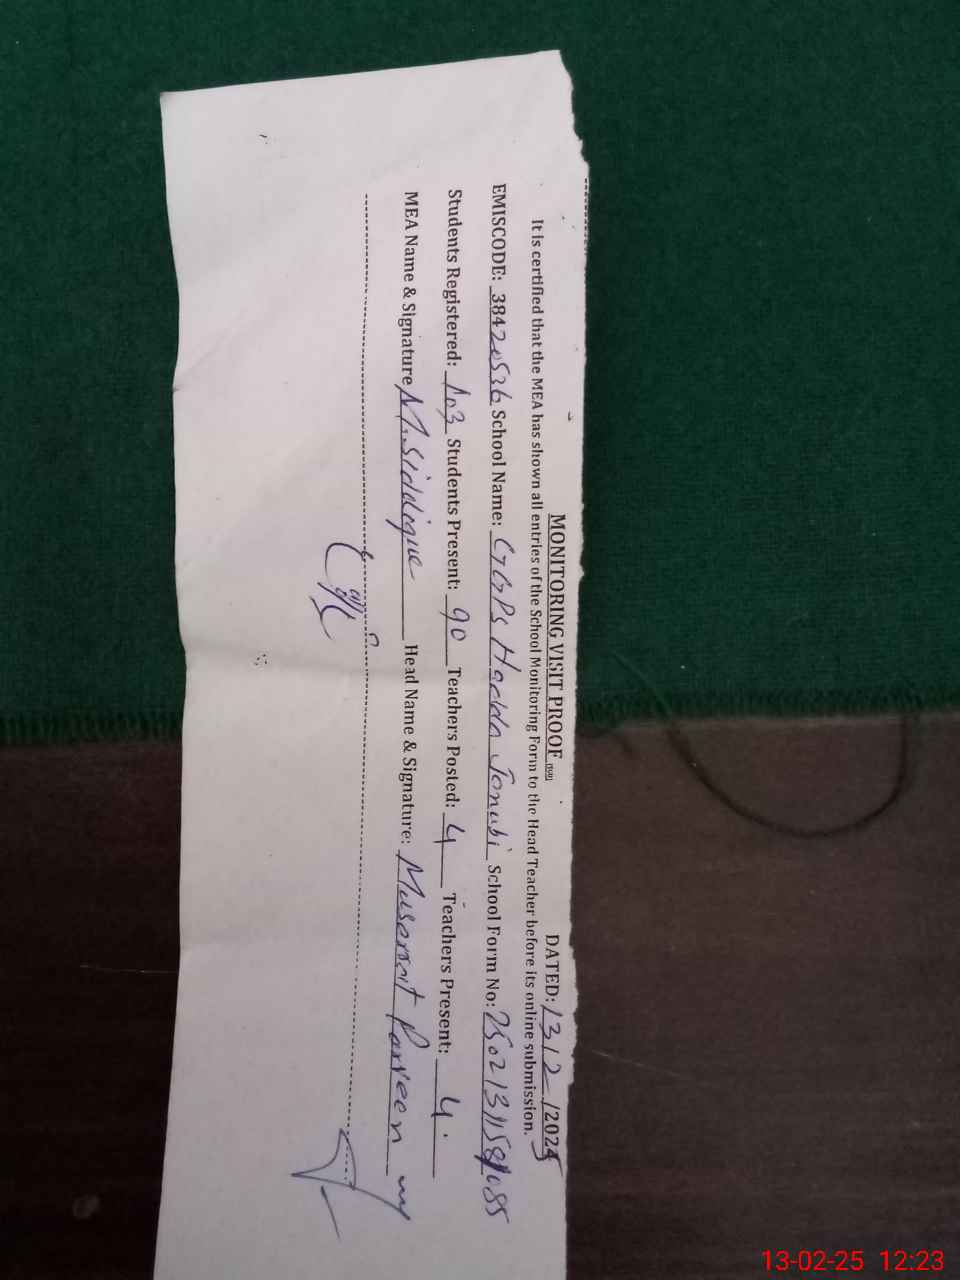 MONITORING VISIT PROOF DATED: 13/2/2025
It is certified that the MEA has shown all entries of the School Monitoring Form to the Head Teacher before its online submission.
EMISCODE: 38420536 School Name: GGPS Hadda Jonubi School Form No:
Students Registered: 103 Students Present: 90 Teachers Posted: 4 Teachers Present: 4
MEA Name & Signature M.Siddique Head Name & Signature: Muserat Parveen
13-02-25 12:23